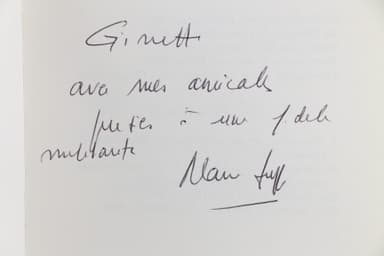 Ginette
avec mes amicales
pensées à une fidèle
militante
Alain